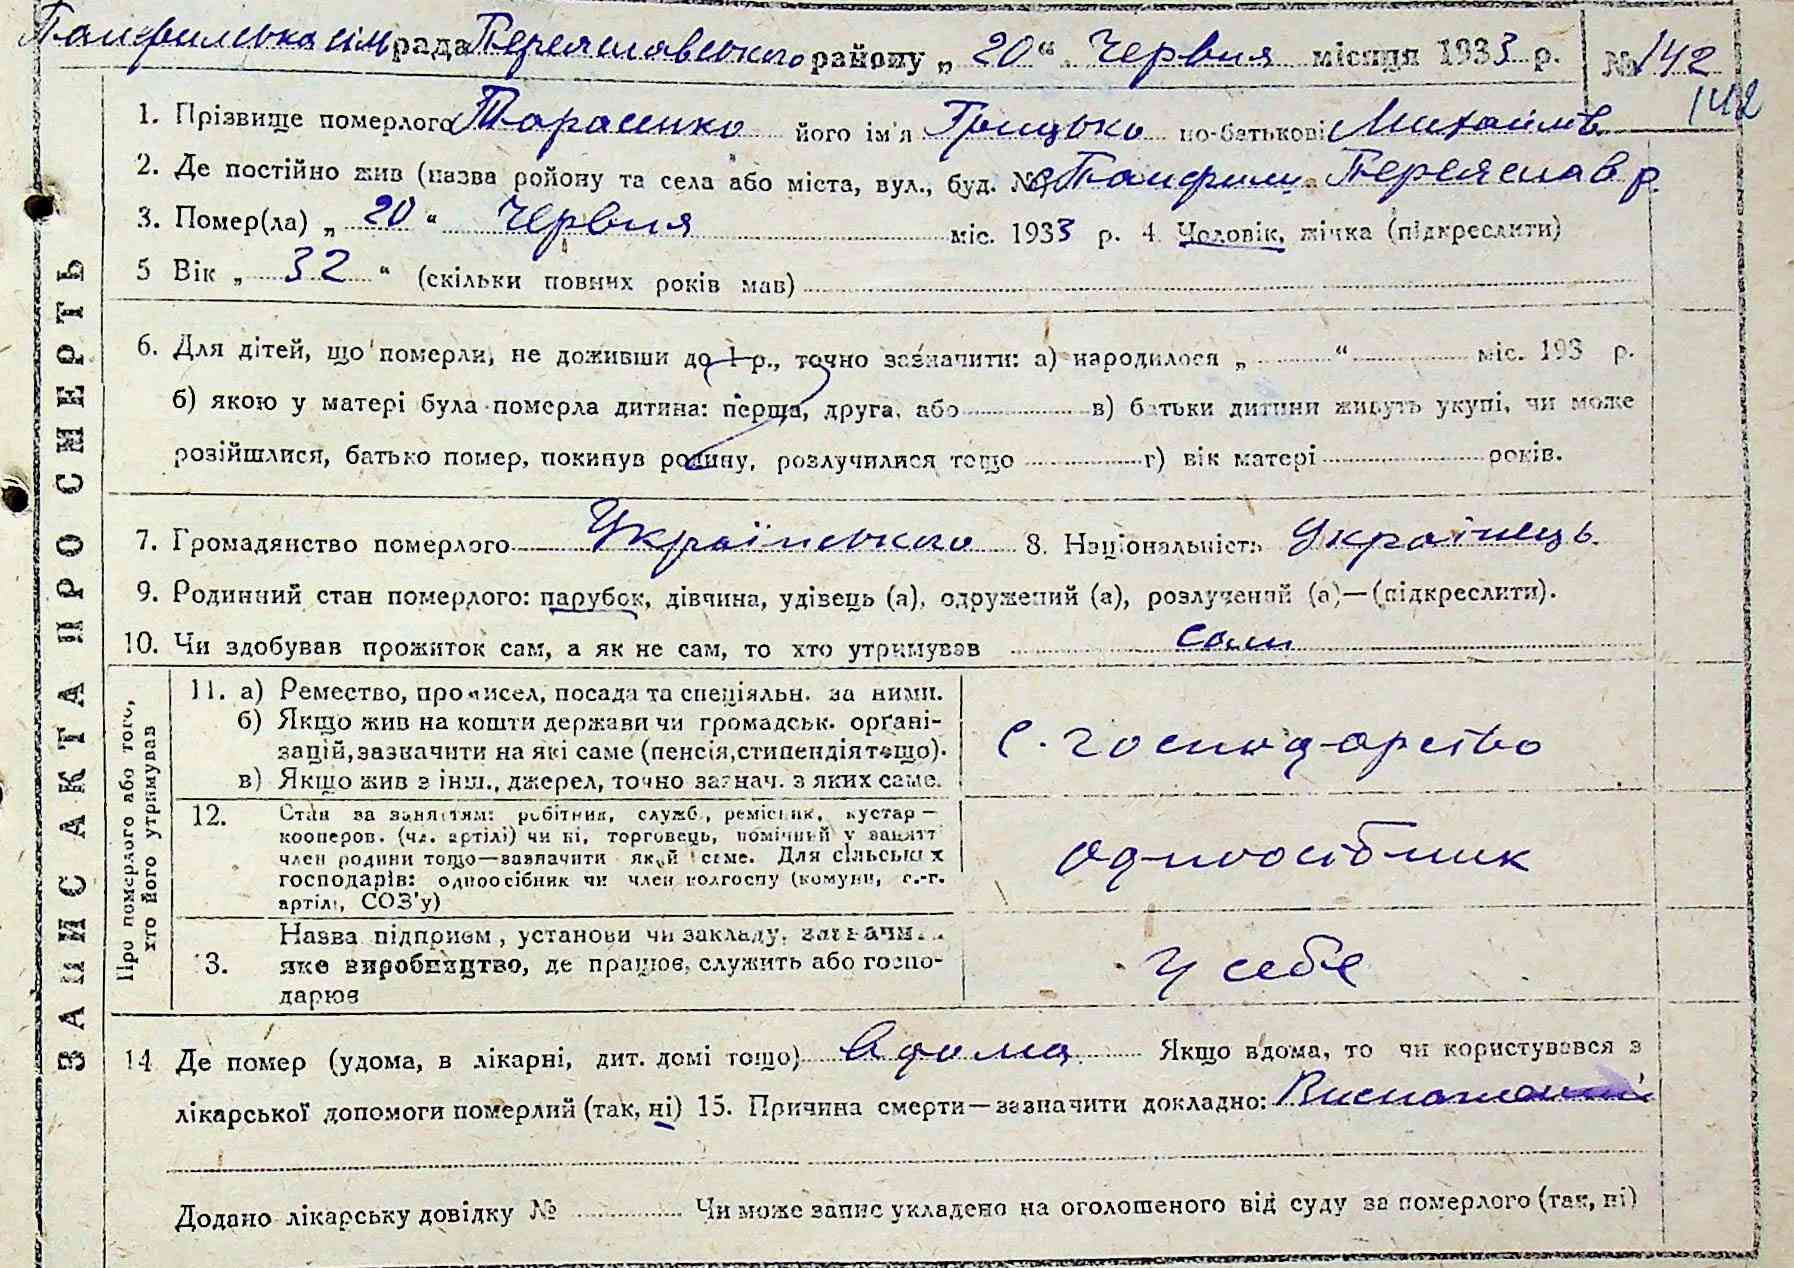 Памфильська сіль рада Переяславського району „ 20 “ Червня місяця 1933 р. № 142
142
1. Прізвище померлого Тарасенко його ім'я Грицько по-батькові Михайлів
2. Де постійно жив (назва ройону та села або міста, вул., буд. № с. Памфили Переяслав р.
3. Помер(ла) „ 20 “ Червня міс. 1933 р. 4. Чоловік, жінка (підкреслити)
5 Вік „ 32 “ (скільки повних років мав)
6. Для дітей, що померли, не доживши до 1 р., точно зазначити: а) народилося „ “ міс. 193 р.
б) якою у матері була померла дитина: перша, друга, або в) батьки дитини живуть укупі, чи може
розійшлися, батько помер, покинув родину, розлучилися тощо г) вік матері років.
7. Громадянство померлого Українського 8. Національність Українець.
9. Родинний стан померлого: парубок, дівчина, удівець (а), одружений (а), розлучений (а)—(підкреслити).
10. Чи здобував прожиток сам, а як не сам, то хто утримував сам
11. а) Ремество, промисел, посада та спеціяльн. за ними.
б) Якщо жив на кошти держави чи громадськ. орґані-
зацій, зазначити на які саме (пенсія, стипендія тощо).
в) Якщо жив з інш., джерел, точно зазнач. з яких саме.
с. господарство
12. Стан за заняттям: робітник, служб., ремісник, кустар—
кооперов. (чл. артілі) чи ні, торговець, помічний у занятті
член родини тощо—зазначити який саме. Для сільських
господарів: одноосібник чи член колгоспу (комуни, с.-г.
артілі, СОЗ'у)
одноосібник
13. Назва підприєм, установи чи закладу, зазначит.
яке виробництво, де працює, служить або госпо-
дарює
у себе
14 Де помер (удома, в лікарні, дит. домі тощо) вдома Якщо вдома, то чи користувався з
лікарської допомоги померлий (так, ні) 15. Причина смерти—зазначити докладно:
Додано лікарську довідку № Чи може запис укладено на оголошеного від суду за померлого (так, ні)
ЗАПИС АКТА ПРО СМЕРТЬ
Про померлого або того,
хто його утримував